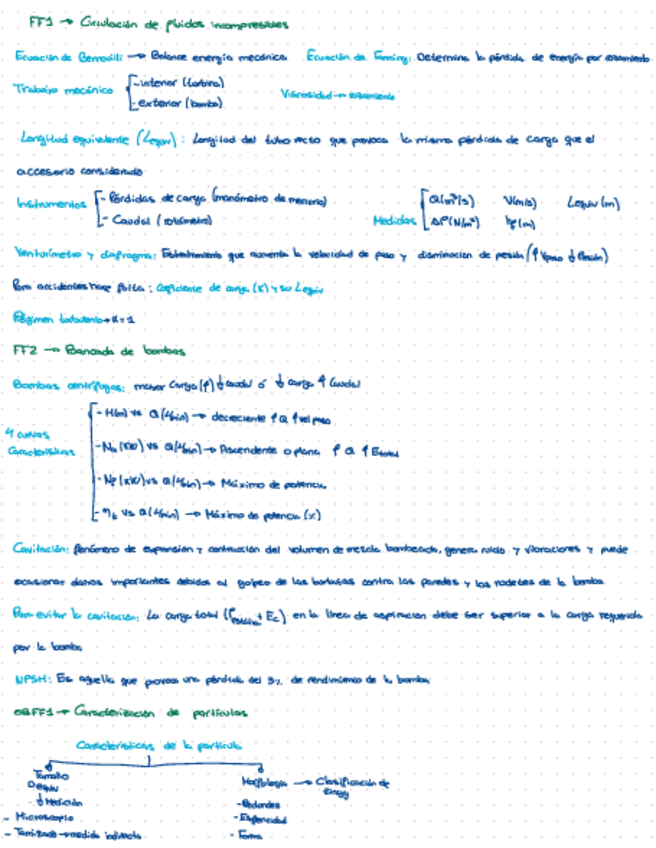 FF1 → Circulación de fluidos incompresibles
Ecuación de Bernoulli: → Balance energía mecánica Ecuación de Fanning: Determina la pérdida de energía por rozamiento
Trabajo mecánico - interior (turbina)
- exterior (bomba)
Viscosidad → rozamiento
Longitud equivalente (Lequiv): Longitud del tubo recto que provoca la misma pérdida de carga que el
accesorio considerado
Instrumentos - Pérdidas de carga (manómetro de mercurio)
- Caudal (rotámetro)
Medidas Q(m³/s) V(m/s) Lequiv (m)
ΔP(N/m²) hf(m)
Venturímetro y diafragma: Estrechamiento que aumenta la velocidad de paso y disminución de presión (↑ Vpaso ↓ Presión)
Para accidentes hace falta: coeficiente de carga (K) y su Lequiv
Régimen turbulento → α = 1
FF2 → Bancada de bombas
Bombas centrífugas: mayor carga (↑) ↓ caudal ó ↓ carga ↑ Caudal
4 curvas
Características
- H(m) vs Q(l/min) → decreciente ↑ Q ↑ vel paso
- Na (kW) vs Q(l/min) → Ascendente o plana ↑ Q ↑ E
- Np (kW) vs Q(l/min) → Máximo de potencia
- η vs Q(l/min) → Máximo de potencia (%)
Cavitación: fenómeno de expansión y contracción del volumen de mezcla bombeada, genera ruido y vibraciones y puede
ocasionar daños importantes debidos al golpeo de las burbujas contra las paredes y los rodetes de la bomba
Para evitar la cavitación: La carga total (P + Ec) en la línea de aspiración debe ser superior a la carga requerida
por la bomba
NPSH: Es aquella que provoca una pérdida del 3% de rendimiento de la bomba
OBFF1 → Caracterización de partículas
Características de la partícula
Tamaño Morfología → Clasificación de
Dequiv Zingg
↓ Medición - Redondez
- Microscopio - Esfericidad
- Tamizado → medida indirecta - Forma